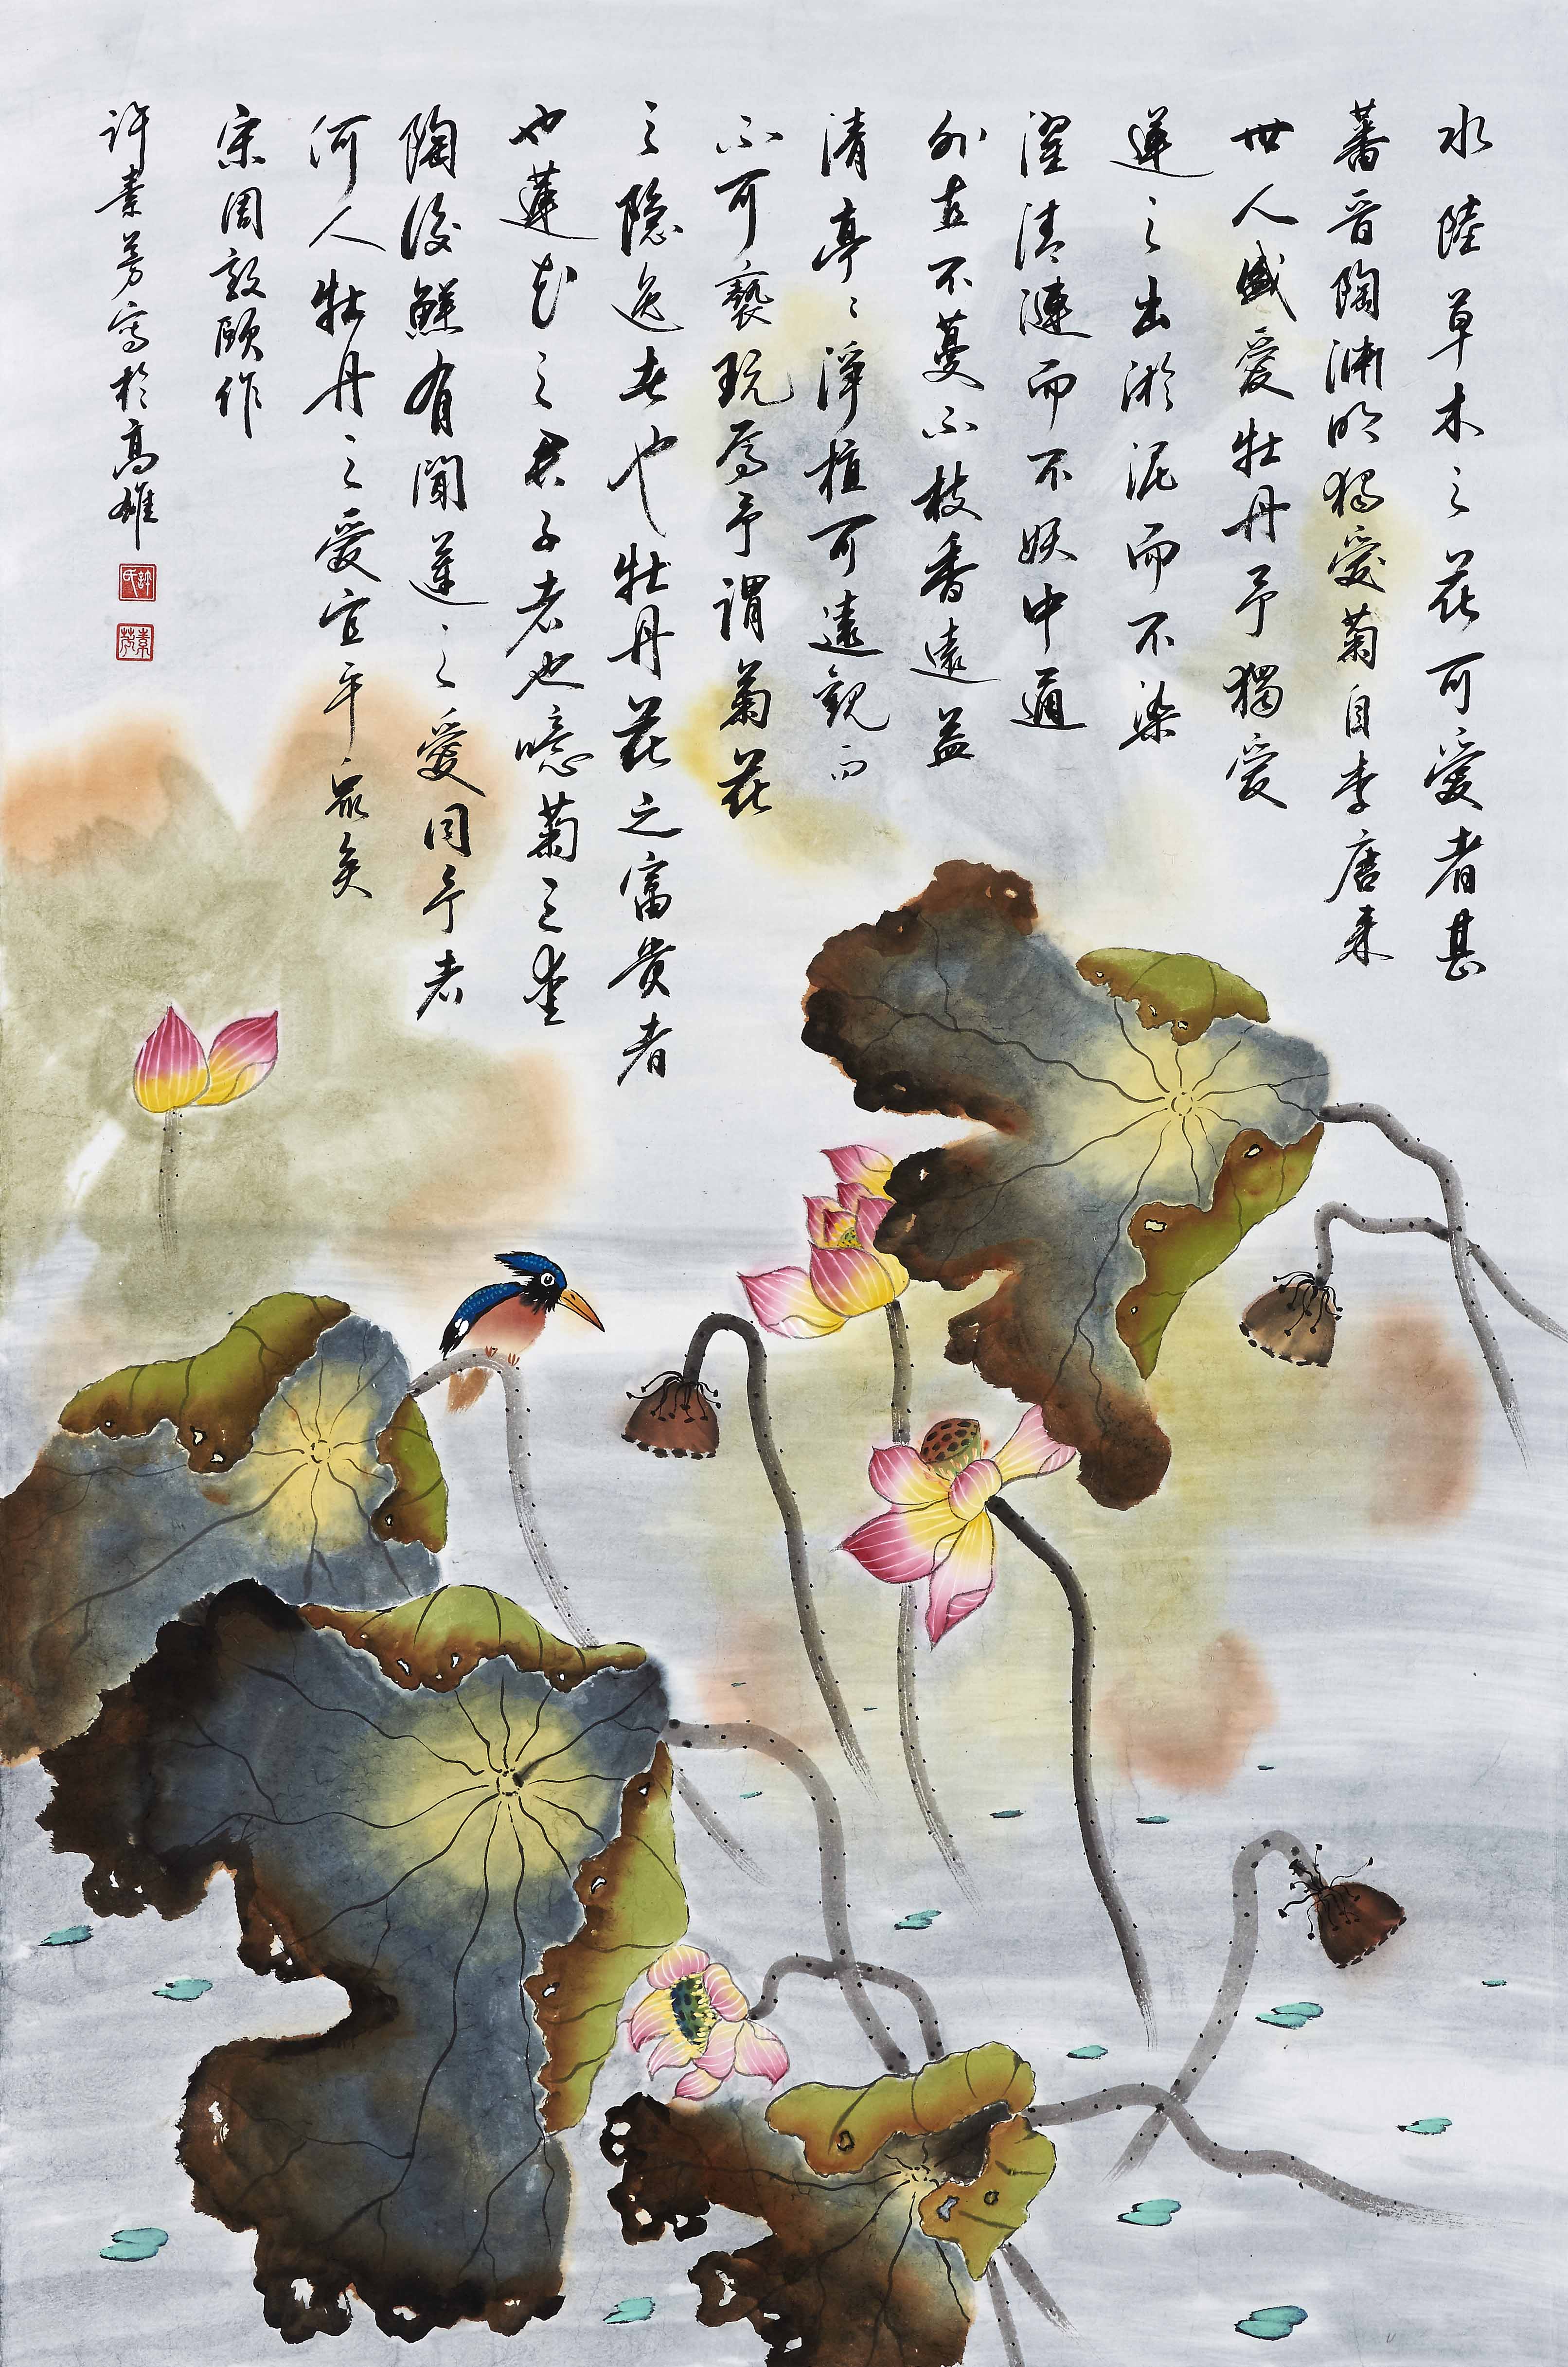 水陸草木之花可愛者甚
蕃晉陶渊明獨愛菊自李唐来
世人盛愛牡丹予獨愛
蓮之出淤泥而不染
濯清漣而不妖中通
外直不蔓不枝香遠益
清亭亭淨植可遠觀而
不可褻玩焉予謂菊花
之隐逸者也牡丹花之富貴者
也蓮花之君子者也噫菊之愛
陶後鮮有聞蓮之愛同予者
何人牡丹之愛宜乎眾矣
宋周敦頤作
許素芳寫於高雄
許氏
素芳